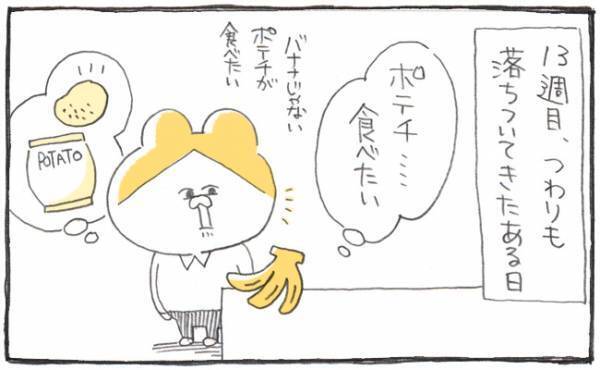 13週目、つわりも
落ちついてきたある日
ポテチ……
食べたい
バナナじゃない
ポテチが
食べたい
POTATO